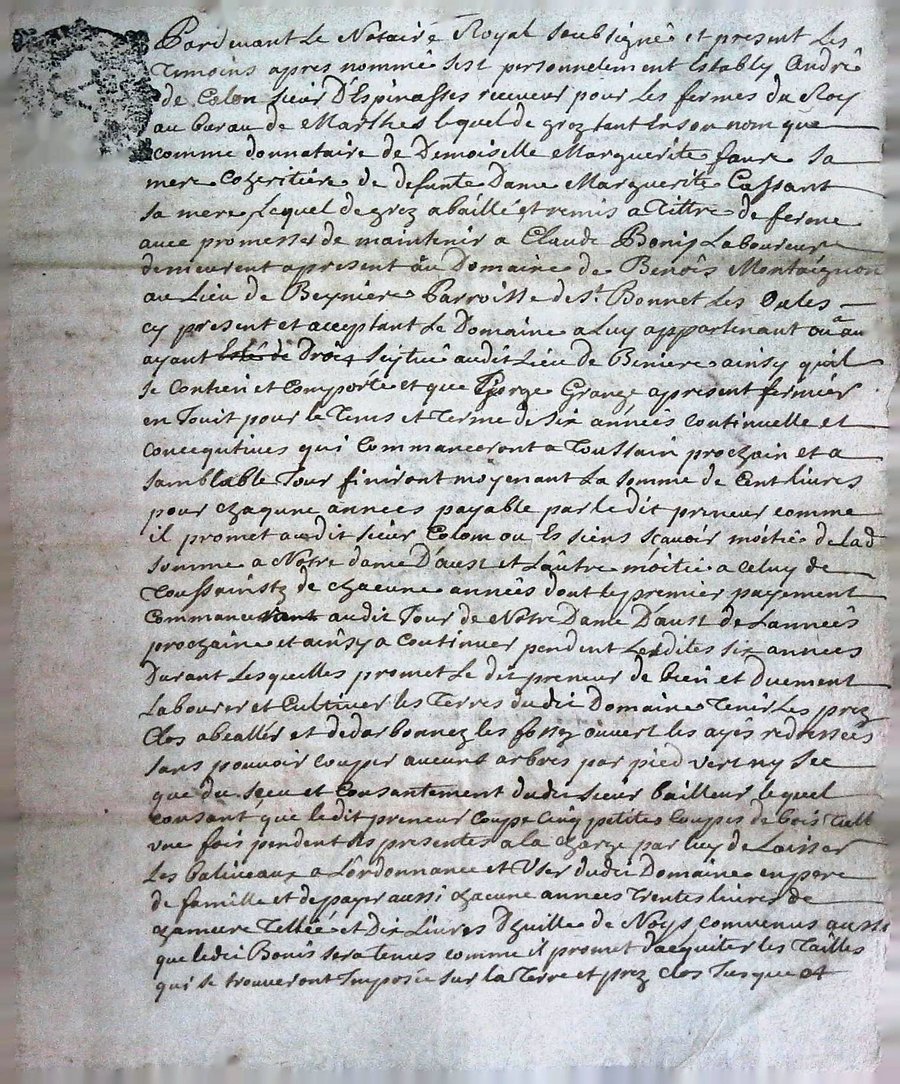 Pardevant Le Notaire Royal soubsigné et present Les
Temoins apres nommé sest personnelement Estably André
de Colon sieur D'Espinasses receveur pour Les fermes du Roy
au burau de Marthes lequel de grez tant En son nom que
comme donnataire de Demoiselle Marguerite faure sa
mere Coheritiére de defunte Dame Marguerite Cassant
sa mere, Lequel de grez a baillé et remis a Tittre de ferme
avec promesses de maintenir a Claude Bonis Laboureur
demeurent apresent au Domaine de Benoîs Montaignon
au Lieu de Beyniere Parroisse de St. Bonnet Les Oules
cy present et acceptant Le Domaine a Luy appartenant ou au
ayant Drois scitué audit Lieu de Biniere ainsy quil
se contien et comporte et que George Grange apresent fermier
en Jouit pour le Tems et Terme de six années continuelle et
concequtives qui Commanceront a Toussain prochain et a
samblable Jour finiront moyenant La somme de Cent livres
pour chaqune années payable par ledit preneur comme
il promet audit sieur Colom ou Es siens scavoir moitié de Lad
somme a Notre dame D'aust et L'autre moitié a Celuy de
Toussaintz de chacune années dont le premier payement
Commancera audit Jour de Notre Dame D'aust de L'année
prochaine et ainsy a Continuer pendent Lesdites six années
Durant Lesquelles promet Le dit preneur de bien et Duement
Labourer et Cultiver les Terres dudit Domaine Tenir Les prez
Clos abeallér et dedarbonnez les fossez ouvert les ayes redressées
sans pouvoir couper aucuns arbres par pied vert ny sec
que du sceu et Consantement dudit sieur bailleur lequel
consant que ledit preneur Coupe Cinq petites Coupes de bois
une fois pendent Les presentes a la charge par luy de Laisser
Les baliveaux a L'ordonnance et User dudit Domaine en pere
de famille et de payer aussi chacune années Trentes livres de
Tellée et Dix Livres D'huille de Noys, convenus aussi
que ledit Bonis sera Tenus comme il promet d'acquiter les Tailles
qui se trouveront Imposée sur la Terre et prez Clos Jusques